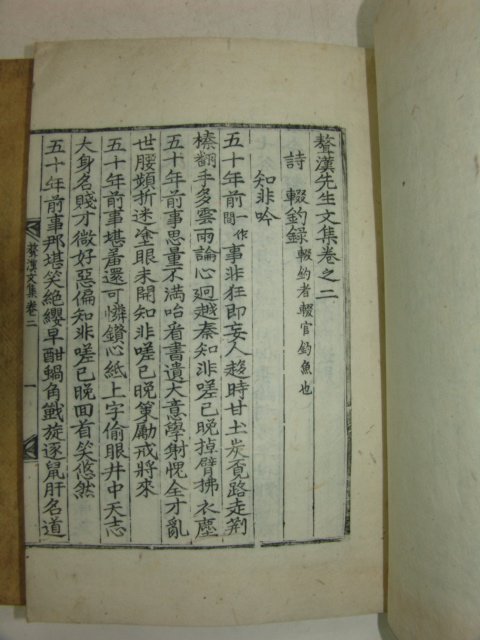 鰲漢先生文集卷之二
詩 輟釣錄 輟釣者輟官釣魚也
知非吟
五十年前一作間事非狂即妄人趨時甘土炭覓路走荆
榛翻手多雲雨論心迥越秦知非嗟已晚掉臂拂衣塵
五十年前事思量不滿咍看書遺大意學射愧全才亂
世腰頻折迷塗眼未開知非嗟已晚策勵戒將來
五十年前事堪羞還可憐鑽心紙上字偷眼井中天志
大身名賤才微好惡偏知非嗟已晚回首笑悠然
五十年前事那堪笑絶纓早酣蝸角戰旋逐鼠肝名道
鰲漢文集卷二 一